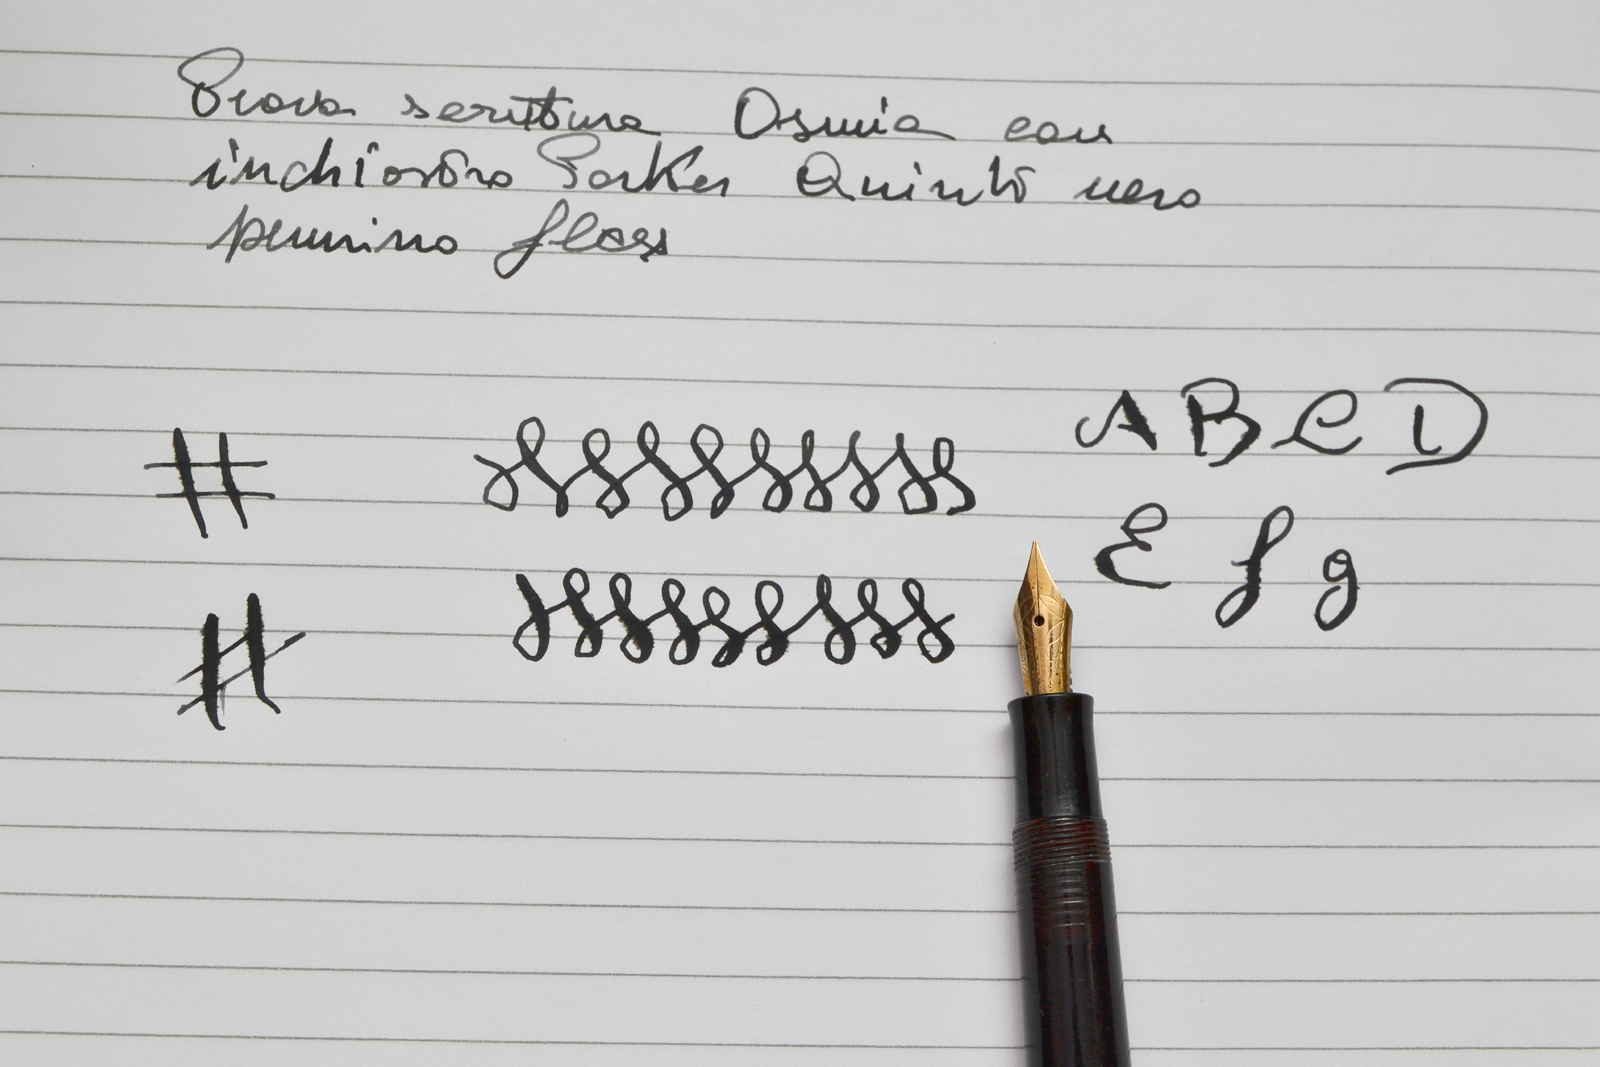 Prova scrittura Osmia con
inchiostro Parker Quink nero
pennino fless
# A B C D
# E f g